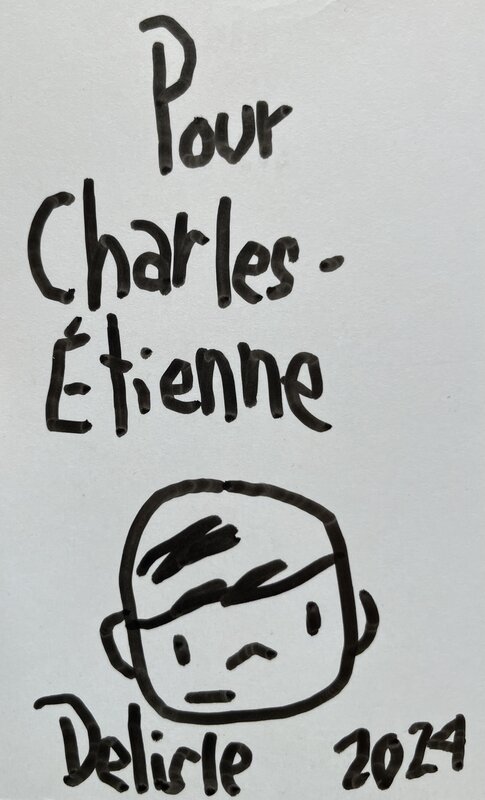 Pour
Charles-
Étienne
Delisle 2024